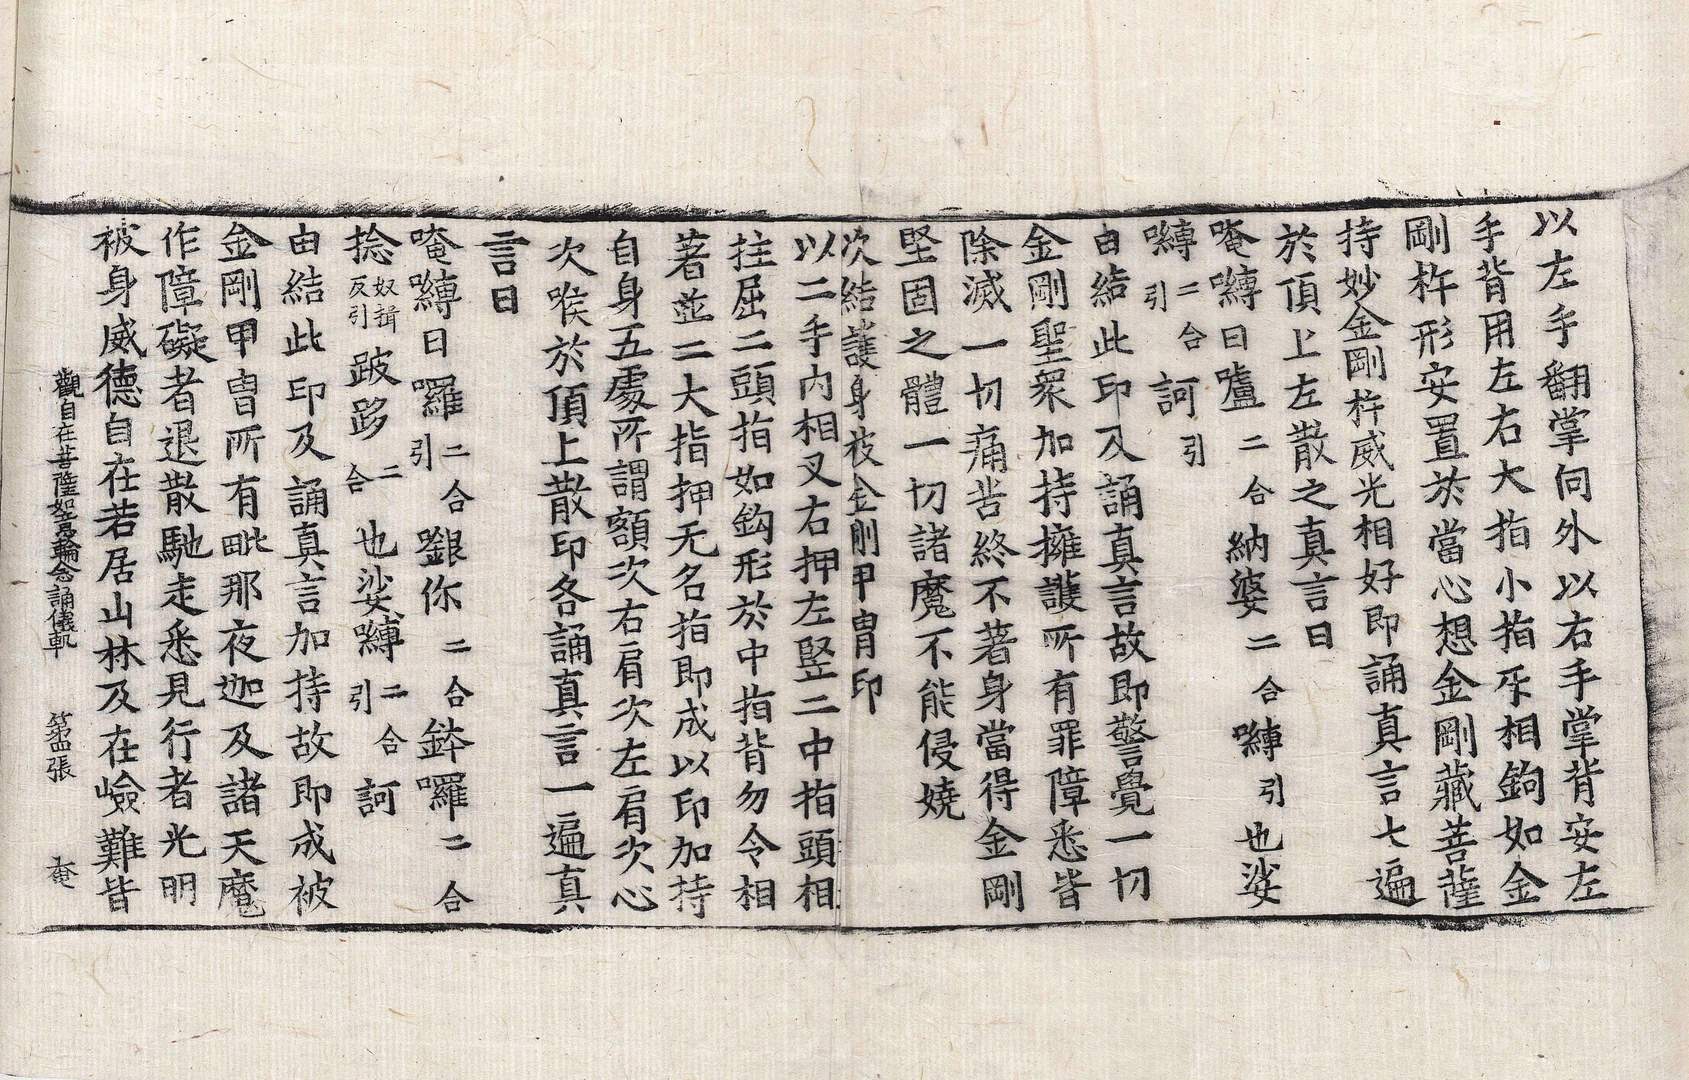 以左手翻掌向外以右手掌背安左
手背用左右大指小指牙相鉤如金
剛杵形安置於當心想金剛藏菩薩
持妙金剛杵威光相好即誦真言七遍
於頂上左散之真言曰
唵嚩日嚧二合納婆二合嚩引也娑
嚩二合引訶引
由結此印及誦真言故即警覺一切
金剛聖衆加持擁護所有罪障悉皆
除滅一切痛苦終不著身當得金剛
堅固之體一切諸魔不能侵嬈
次結護身被金剛甲冑印
以二手內相叉右押左竪二中指頭相
拄屈二頭指如鈎形於中指背勿令相
著並二大指押无名指即成以印加持
自身五處所謂額次右肩次左肩次心
次喉於頂上散印各誦真言一遍真
言曰
唵嚩日囉二合引銀你二合鉢囉二合
捻奴揖反引跛跢二合也娑嚩二合引訶
由結此印及誦真言加持故即成被
金剛甲冑所有毗那夜迦及諸天魔
作障礙者退散馳走悉見行者光明
被身威德自在若居山林及在嶮難皆
觀自在菩薩如意輪念誦儀軌 第四張 奄